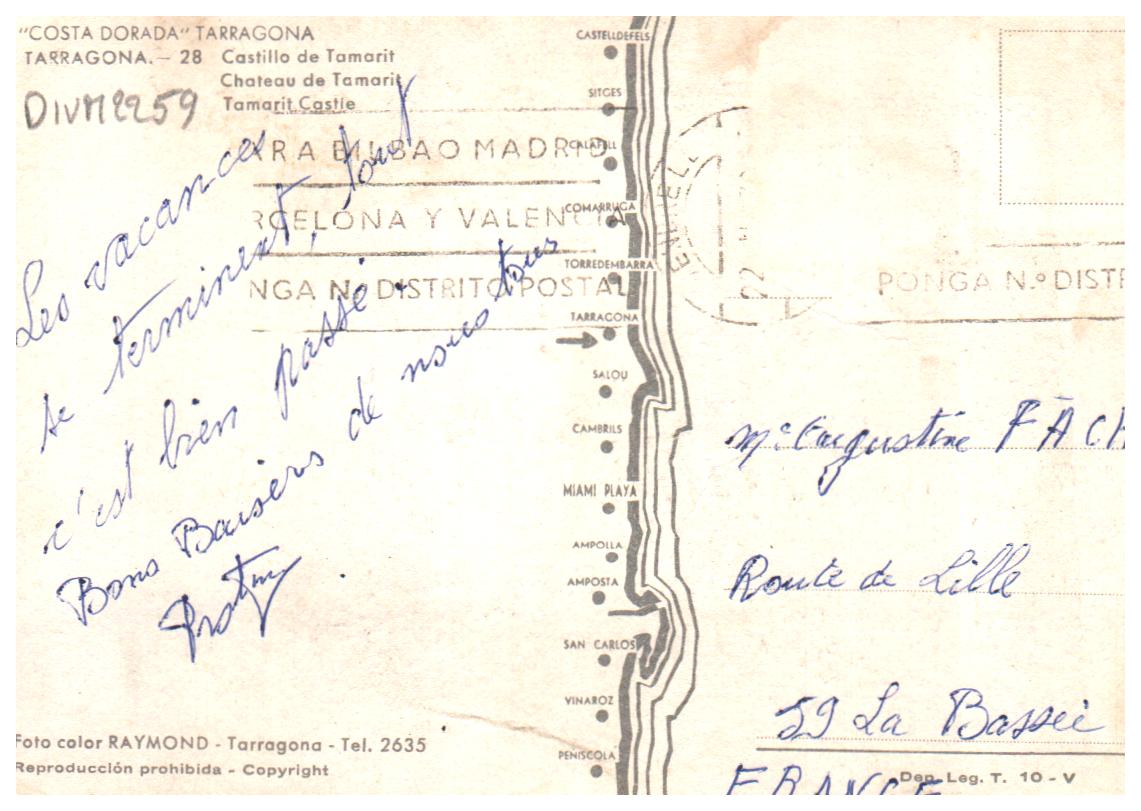 "COSTA DORADA" TARRAGONA
TARRAGONA.- 28 Castillo de Tamarit
Chateau de Tamarit
Tamarit Castle
DIVM2259
ARA BILBAO MADRID
RCELONA Y VALENCIA
NGA N.º DISTRITO POSTAL
Les vacances
se terminent, tout
c'est bien passé.
Bons Baisers de nous tous
CASTELLDEFELS
SITGES
CALAFELL
COMARRUGA
TORREDEMBARRA
TARRAGONA
SALOU
CAMBRILS
MIAMI PLAYA
AMPOLLA
AMPOSTA
SAN CARLOS
VINAROZ
PEÑISCOLA
22
PONGA N.º DISTR
Route de Lille
59 La Bassée
FRANCE
Foto color RAYMOND - Tarragona - Tel. 2635
Reproducción prohibida - Copyright
Dep. Leg. T. 10 - V